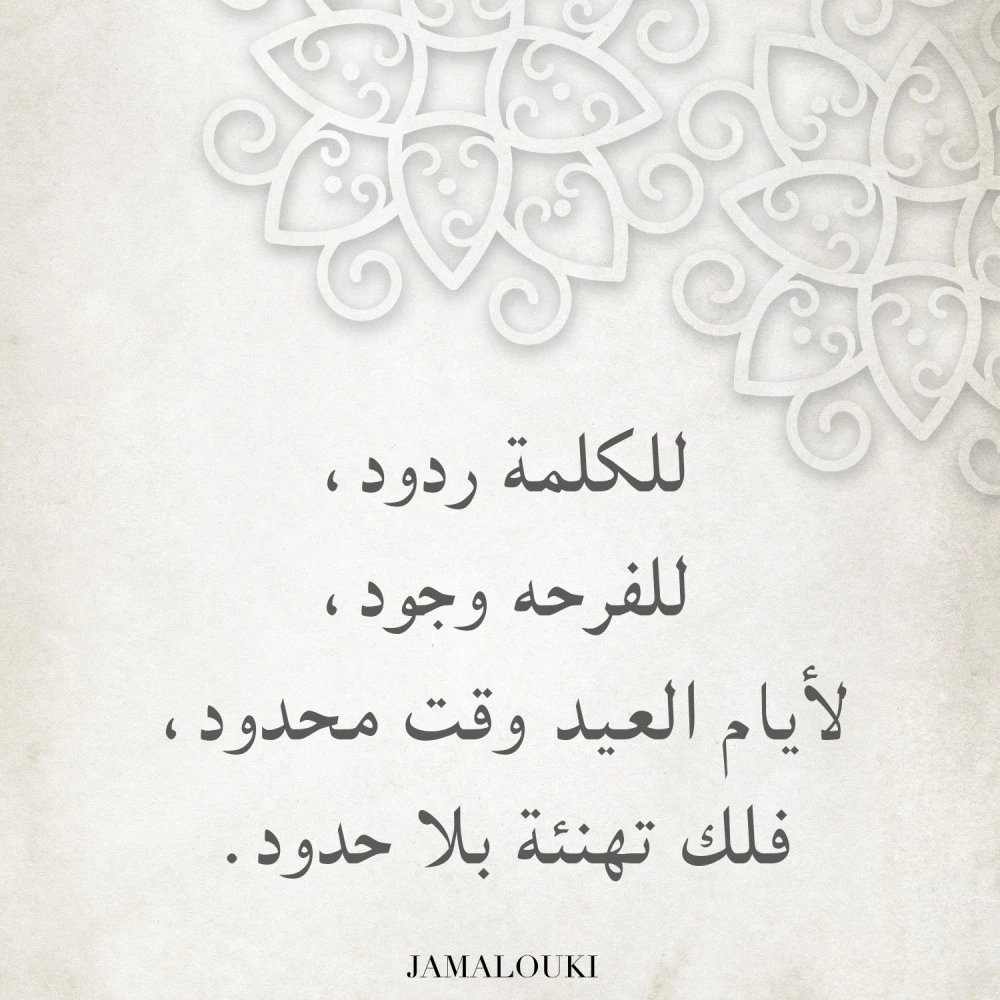 للكلمة ردود ،
للفرحه وجود ،
لأيام العيد وقت محدود ،
فلك تهنئة بلا حدود .
JAMALOUKI